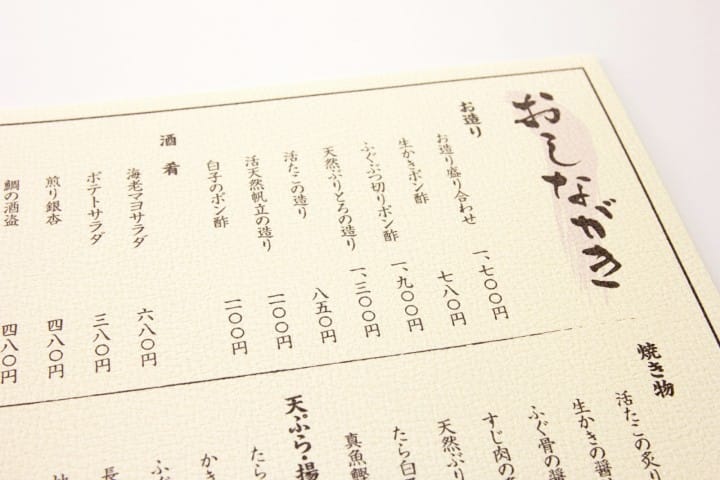 おしながき
お造り
お造り盛り合わせ 一、七〇〇円
生かきポン酢 七八〇円
ふぐぶつ切りポン酢 一、九〇〇円
天然ぶりとろの造り 一、三〇〇円
活たこの造り 八五〇円
活天然帆立の造り 一一〇〇円
白子のポン酢 一一〇〇円
酒肴
海老マヨサラダ 六八〇円
ポテトサラダ 三八〇円
煎り銀杏 四八〇円
鯛の酒盗 四八〇円
焼き物
活たこの炙り
生かきの醤
ふぐ骨の醤
すじ肉の
天然ぶり
たら白子
真魚鰹
天ぷら・揚
たら
かき
ふぐ
長